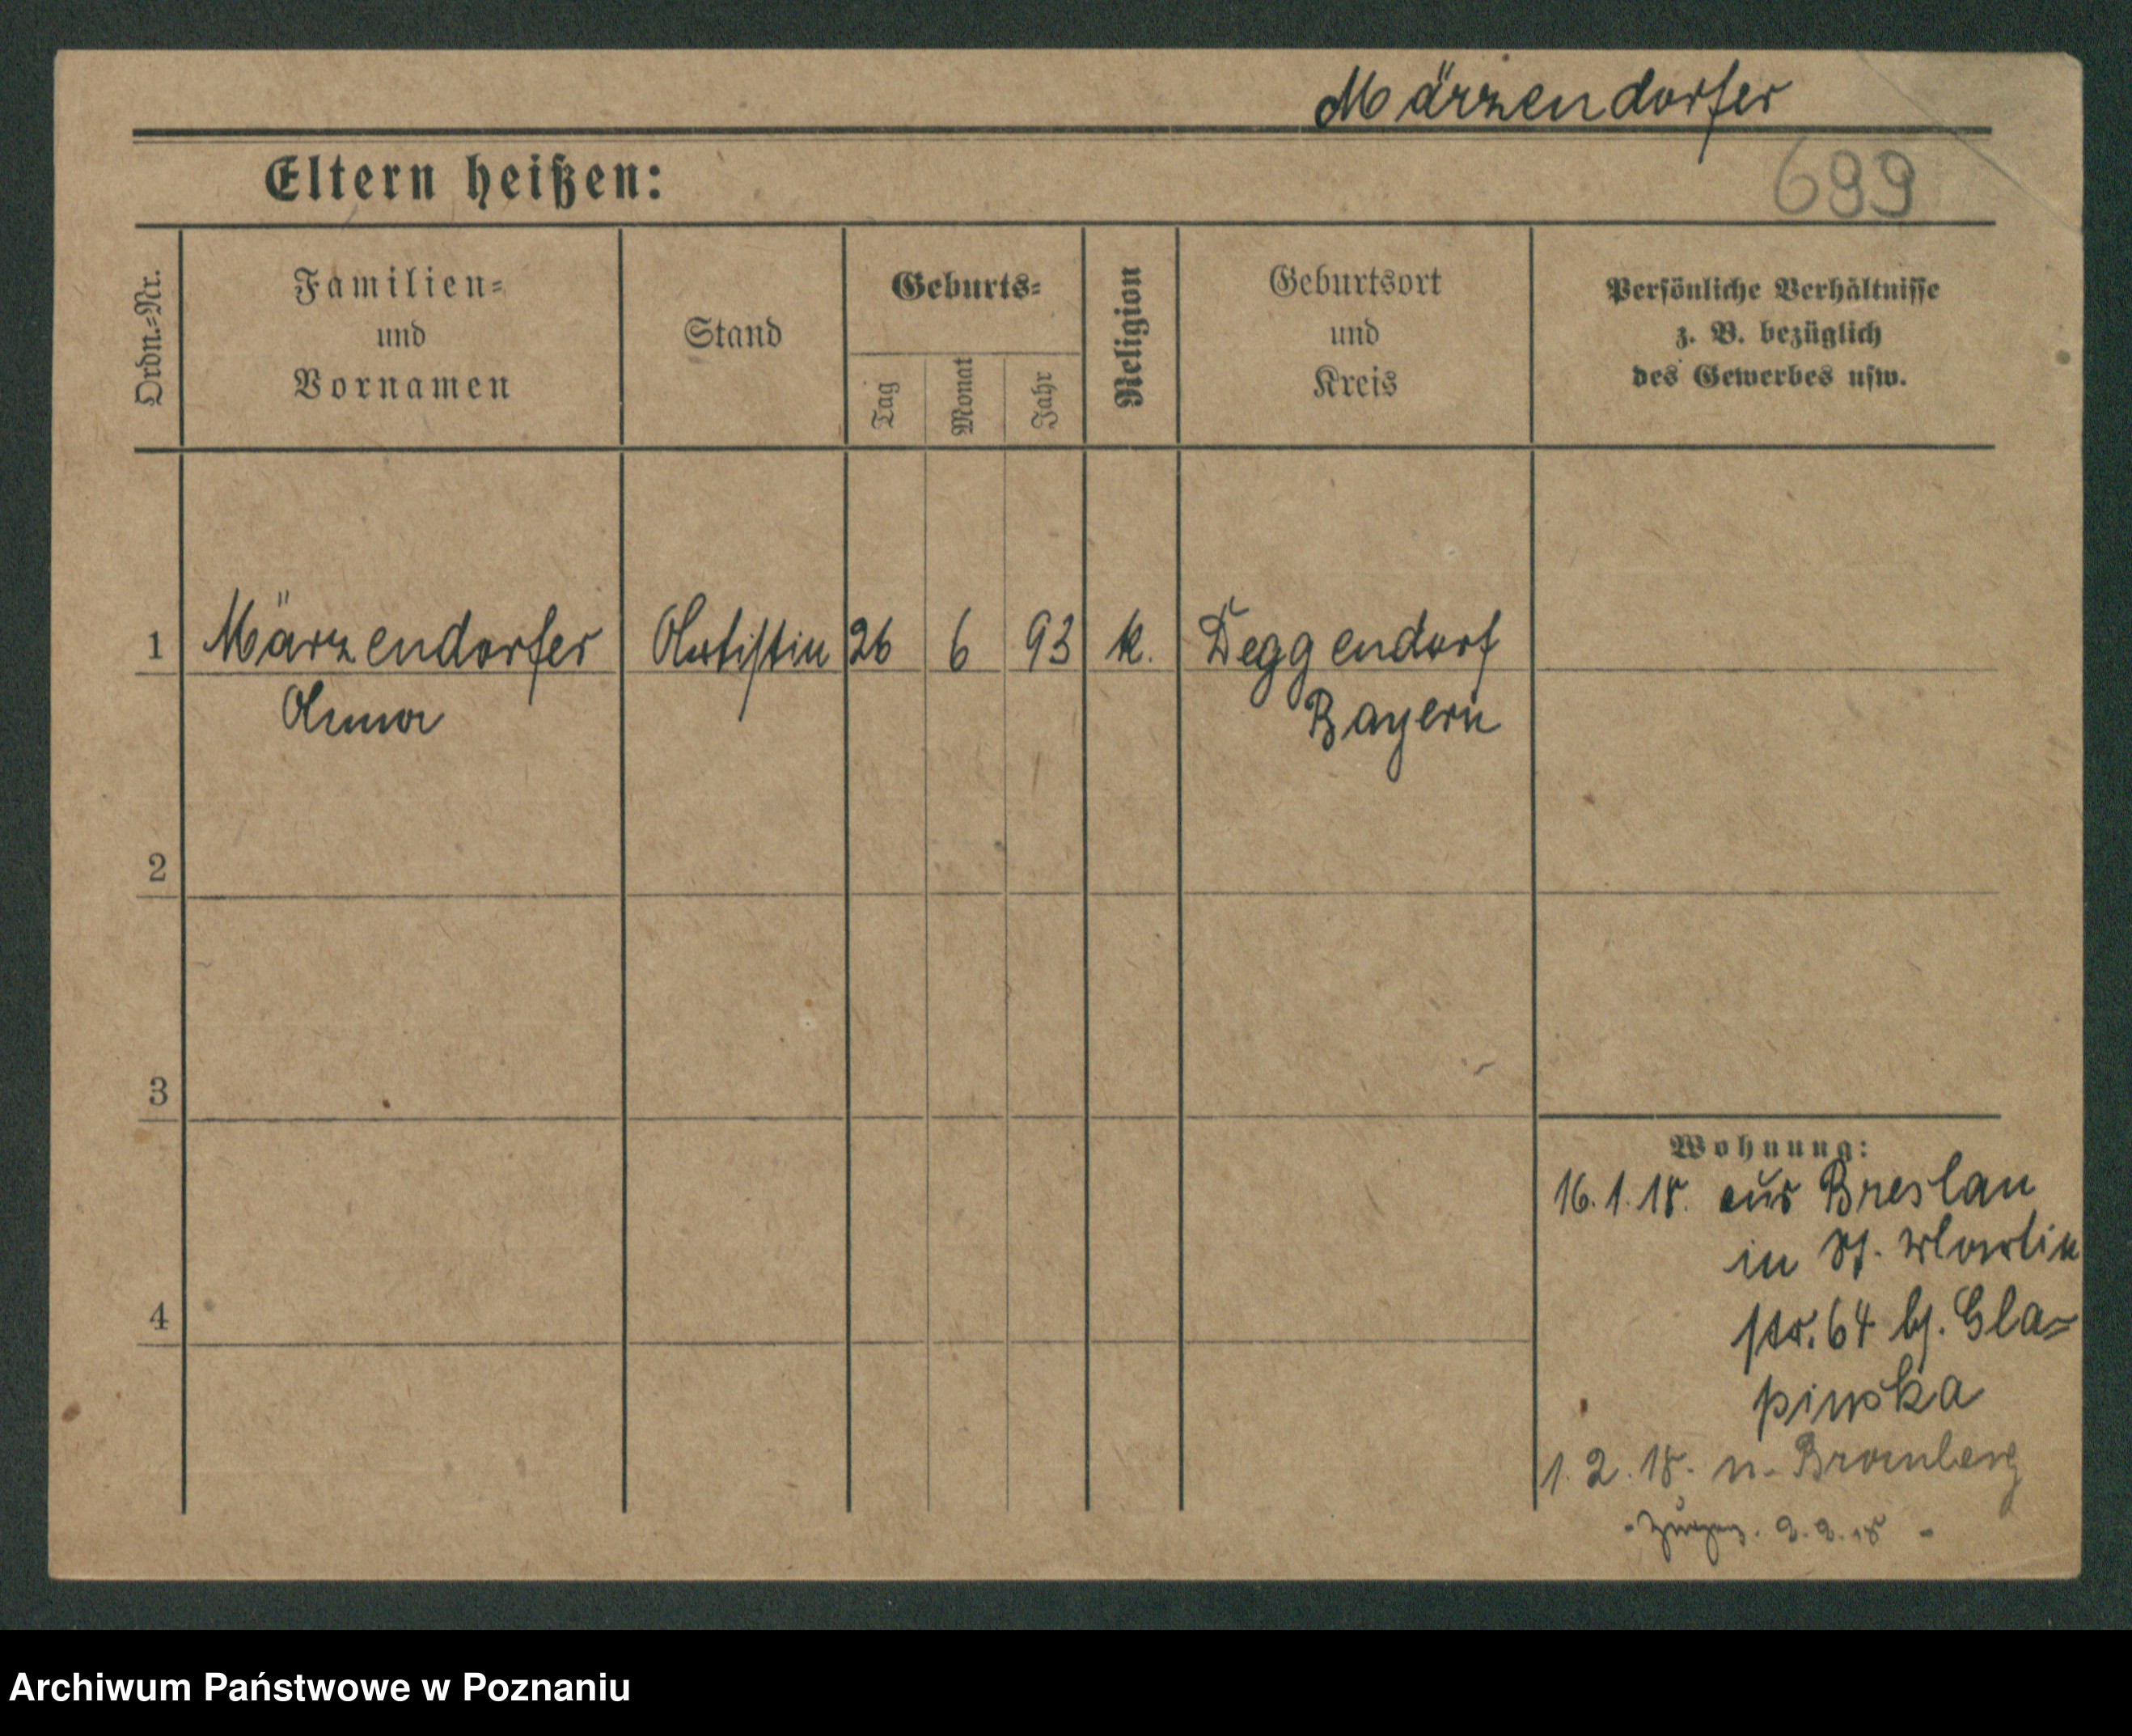 Märzendorfer
Eltern heißen:
699
Ordn.=Nr.
Familien=
und
Vornamen
Stand
Geburts=
Tag
Monat
Jahr
Religion
Geburtsort
und
Kreis
Persönliche Verhältnisse
z. B. bezüglich
des Gewerbes usw.
1 Märzendorfer Artistin 26 6 93 k. Deggendorf
Anna Bayern
2
3
4
Wohnung:
16.1.18. aus Breslau
in St. Martin
str. 64 bj. Gla=
pinska
1.2.18. n. Bromberg
2.2.18 -
Archiwum Państwowe w Poznaniu